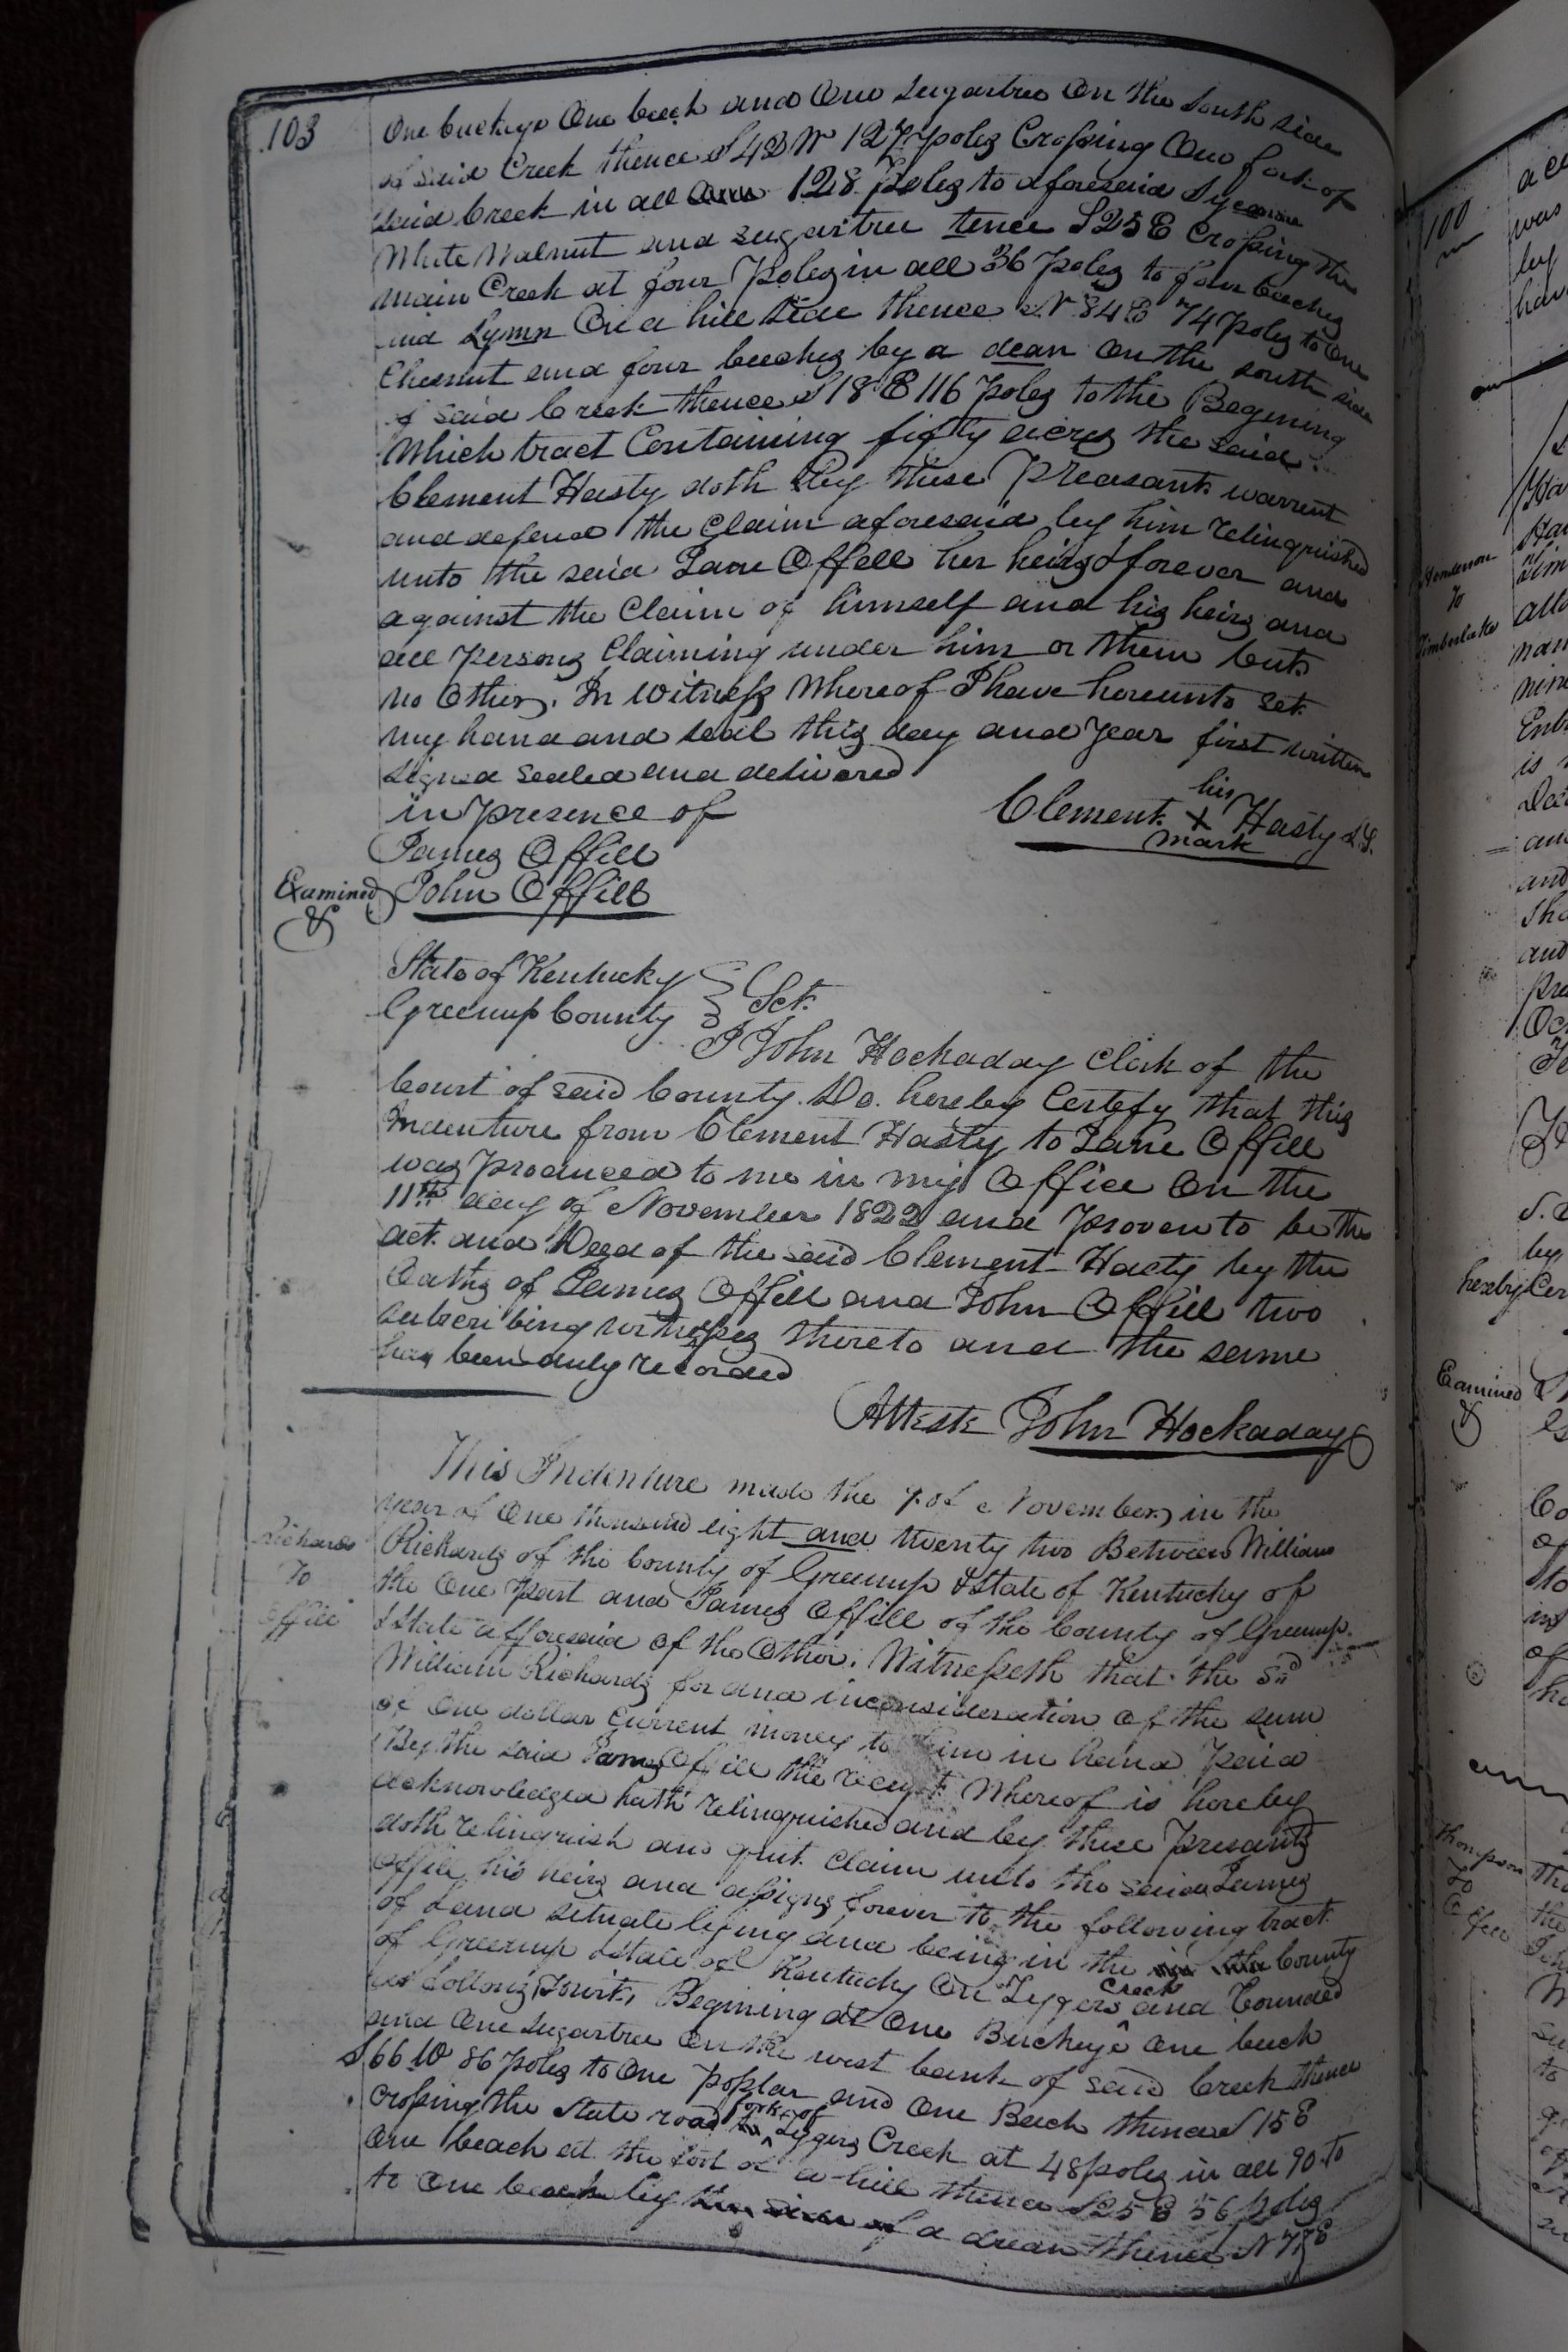 103
One buckeye One beech and One Sugartree On the South side
of said Creek thence S 42 W 127 poles Crossing One fork of
said Creek in all 128 Poles to aforesaid Sycamore
White Walnut and sugartree tence S 25 E Crossing the
main Creek at four Poles in all 36 poles to four beeches
and Lymn On a hill side thence N 84 E 74 poles to One
Chesnut and four beeches by a dean On the south side
of said Creek thence S 18 E 116 poles to the Begening
Which tract Containing fifty acres the said
Clement Hasty doth by these Preasants warrent
and defend the Claim aforesaid by him relinquished
unto the said Jane Offell her heirs & forever and
against the Claim of himself and his heirs and
all Persons Claiming under him or them but
no Others. In Witness Whereof I have hereunto set
my hand and seal this day and year first written
Signed sealed and delivered
in presence of
Clement his X mark Hasty L.S.
James Offill
Examined
&
John Offill
State of Kentucky
Greenup County } Sct.
I John Hockaday Clerk of the
Court of said County Do hereby Certefy that this
Indenture from Clement Hasty to Jane Offill
was produced to me in my Office On the
11th day of November 1822 and proven to be the
act and Deed of the said Clement Hasty by the
Oaths of James Offill and John Offill two
subscribing witnesses thereto and the same
has been duly recorded
Atteste John Hockaday
This Indenture made the 7 of November in the
year of One thousand eight and twenty two Between William
Richards
To
Offill
Richards of the County of Greenup & State of Kentucky of
the One part and James Offill of the County of Greenup
& State afforesaid of the Other. Witnesseth that the Sd
William Richards for and inconsideration of the sum
of One dollar Current money to him in hand paid
By the said James Offill the recept Whereof is hereby
acknowledged hath relinquished and by these presants
doth relinquish and quit Claim unto the said James
Offill his heirs and assigns forever to the following tract
of Land situate lying and being in the County
of Greenup & State of Kentucky On Tygers Creek and bounded
as follows Towit, Begining at One Buckeye One beech
and One Sugartree On the west bank of said Creek thence
S 66 W 86 poles to One poplar and One Beech thence S 15 E
Crossing the State road fork of Tygers Creek at 48 poles in all 90 to
One beach at the foot of a hill thence S 25 E 56 poles
to One beech by a drean thence N 77 E
100
Henderson
To
Timberlake
hereby Cer
Examined
&
Thompson
To
Offill